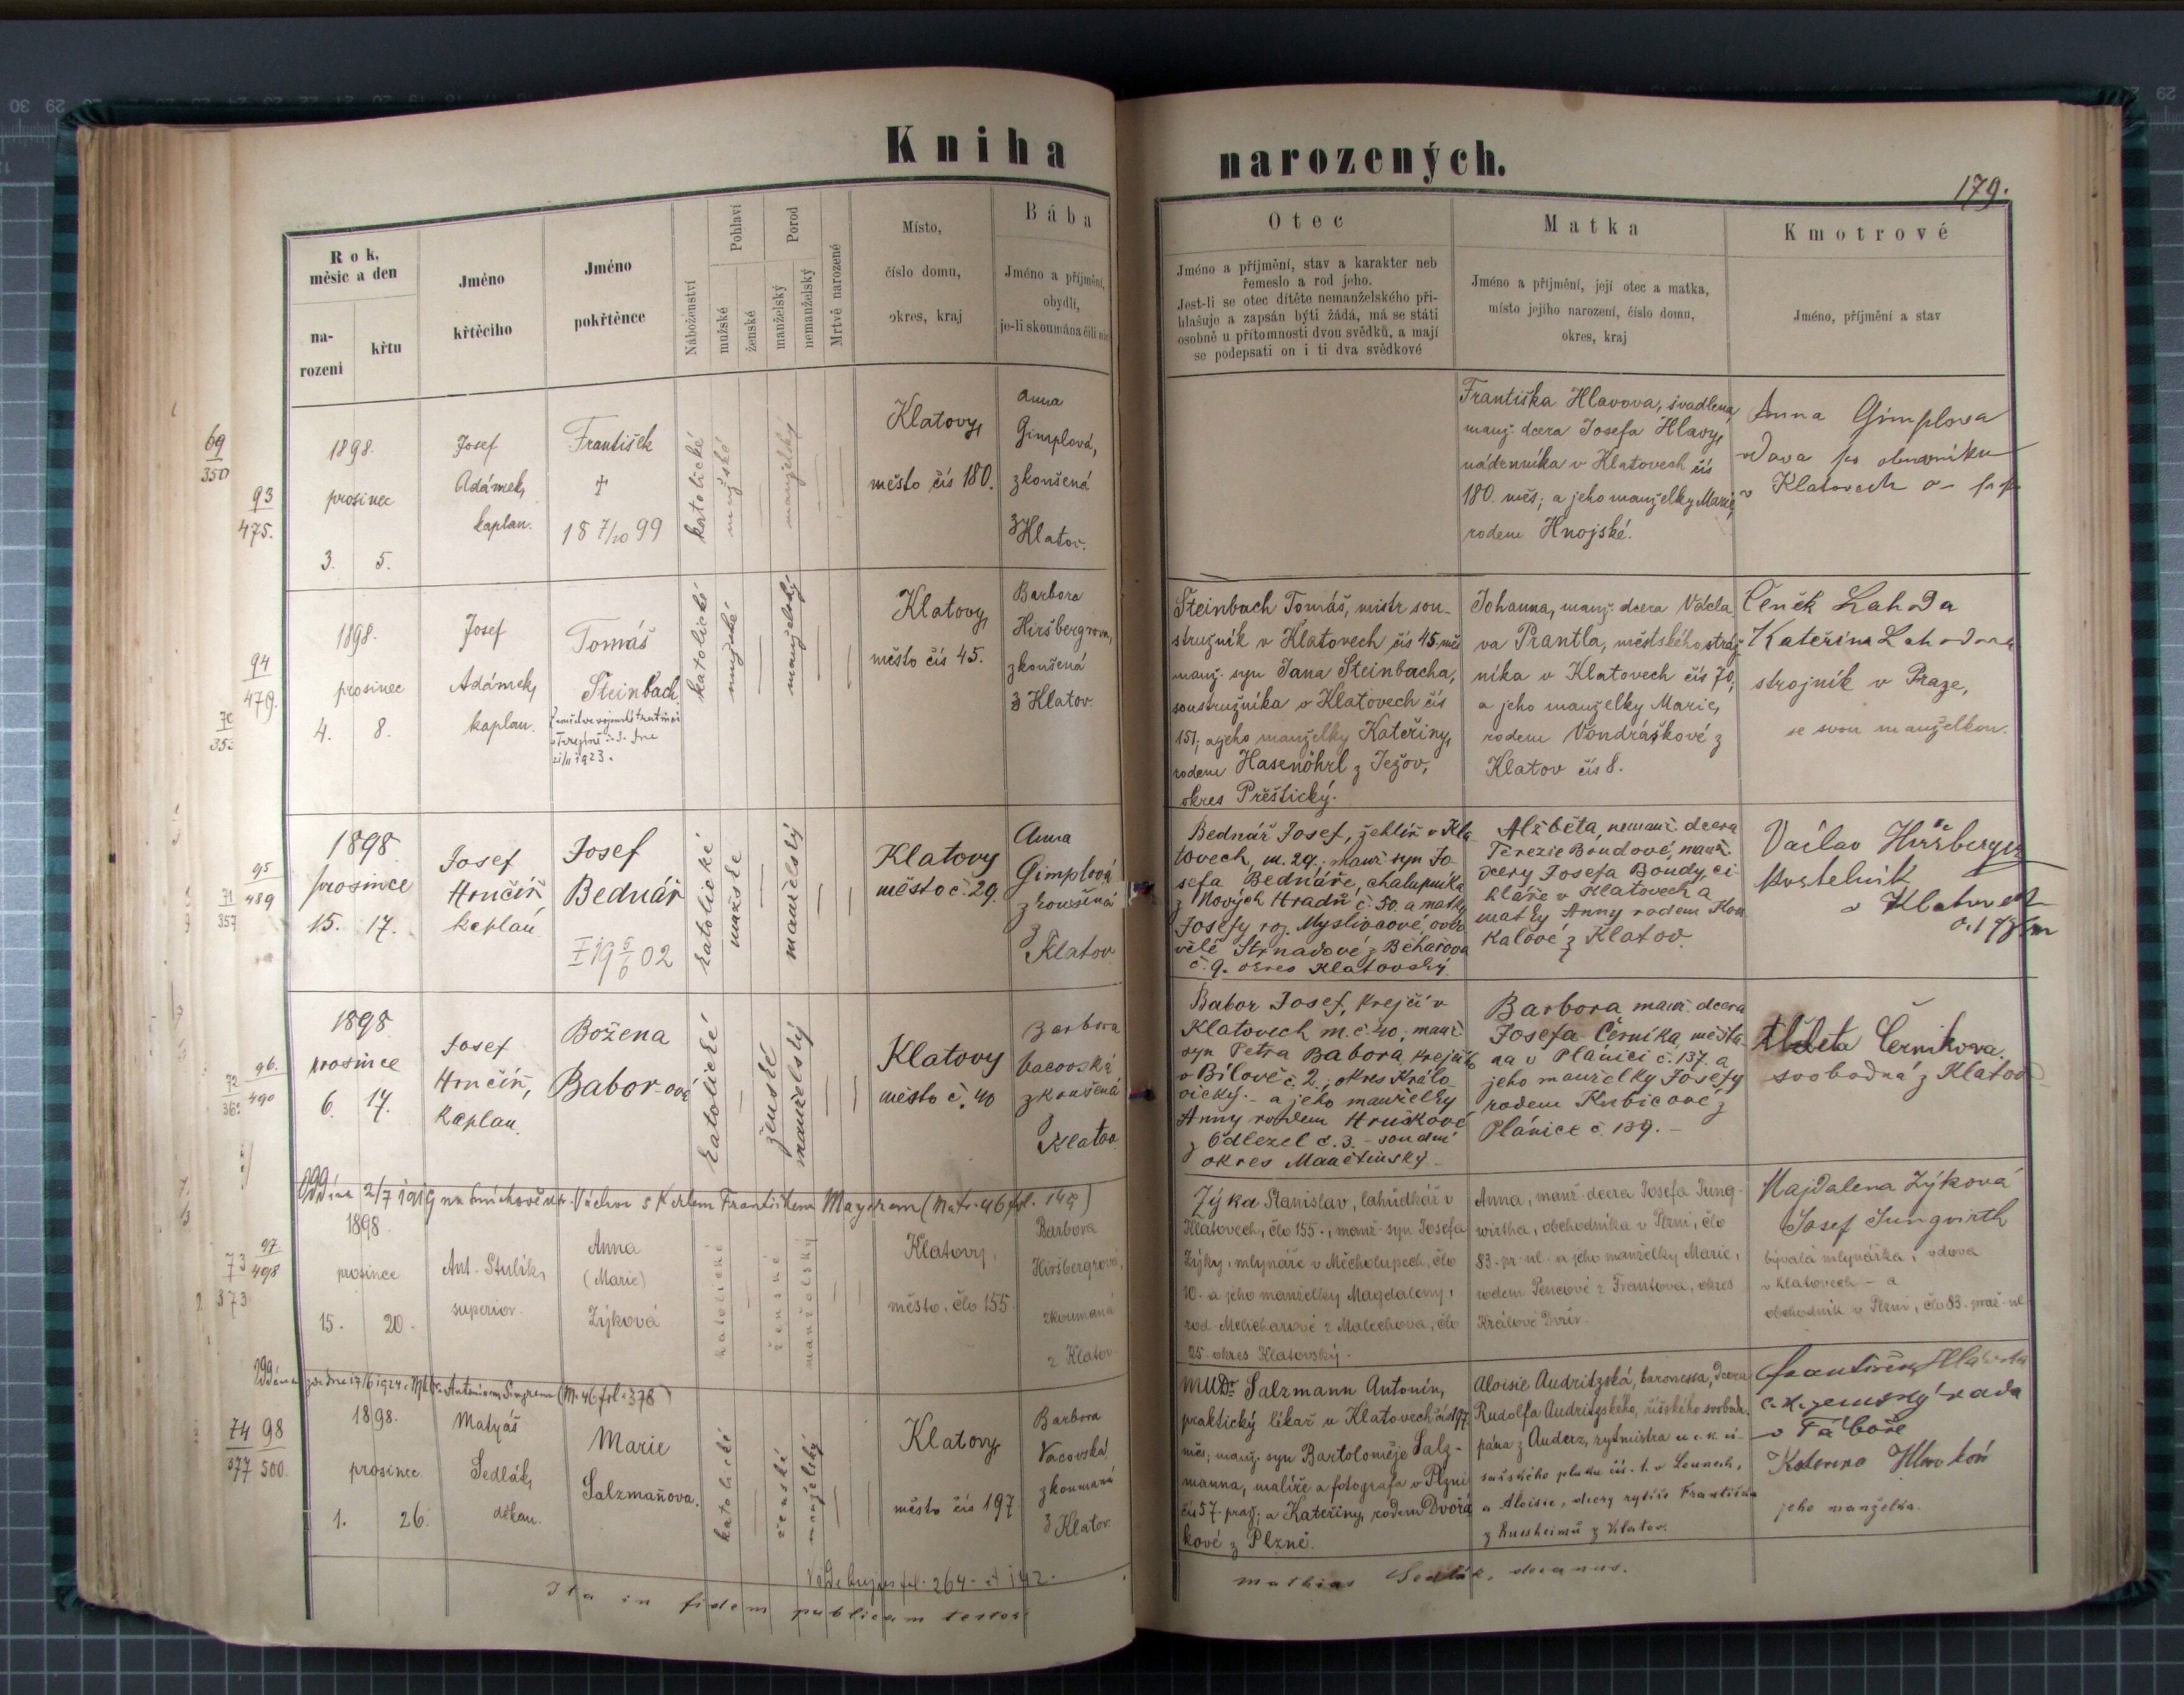 Kniha narozených.
179.
Rok, měsíc a den
narození
křtu
Jméno křtěcího
Jméno pokřtěnce
Náboženství
Pohlaví
mužské
ženské
Porod
manželský
nemanželský
Mrtvě narozené
Místo,
číslo domu,
okres, kraj
Bába
Jméno a příjmění,
obydlí,
je-li zkoumána čili nic
Otec
Jméno a příjmění, stav a karakter neb
řemeslo a rod jeho.
Jest-li se otec dítěte nemanželského při-
hlašuje a zapsán býti žádá, má se státi
osobně u přítomnosti dvou svědků, a mají
se podepsati on i ti dva svědkové
Matka
Jméno a příjmění, její otec a matka,
místo jejího narození, číslo domu,
okres, kraj
Kmotrové
Jméno, příjmění a stav
69
350
93
475.
1898.
prosinec
3. 5.
Josef
Adámek,
kaplan.
František
†
18 7/10 99
katolické
mužské
manželský
Klatovy,
město čís 180.
Anna
Gimplová,
zkoušená
z Klatov.
Františka Hlavova, švadlena,
manž. dcera Josefa Hlavy,
nádenníka v Klatovech čís
180. měs; a jeho manželky Marie,
rodem Hnojské.
Anna Gimplova
vdova po obuvníku
v Klatovech
94
479.
70
353
1898.
prosinec
4. 8.
Josef
Adámek,
kaplan.
Tomáš
Steinbach
katolické
mužské
manželský
Klatovy,
město čís 45.
Barbora
Hiršbergrova,
zkoušená
z Klatov
Steinbach Tomáš, mistr sou-
stružník v Klatovech čís 45. měs
manž. syn Jana Steinbacha,
soustružníka v Klatovech čís
151; a jeho manželky Kateřiny,
rodem Hasenöhrl z Ježov,
okres Přeštický.
Johanna, manž. dcera Václa
va Prantla, městského stráž-
níka v Klatovech čís 70;
a jeho manželky Marie,
rodem Vondráškové z
Klatov čís 8.
Čeněk Lahoda
Kateřina Lahodova
strojník v Praze,
se svou manželkou.
95
489
71
357
1898
prosince
15. 17.
Josef
Hrnčíř
kaplan
Josef
Bednář
katolické
mužské
manželský
Klatovy
město č. 29.
Anna
Gimplová
zkoušená
z
Klatov
Bednář Josef, žehlíř v Kla-
tovech, m. 29; manž. syn Jo-
sefa Bednáře, chalupníka
z Nových Hradů č. 50. a matky
Josefy roz. Myslivcové, ovdo-
vělé Strnadové z Běhařova
č. 9. okres Klatovský
Alžběta, nemanž. dcera
Terezie Boudové, manž.
dcery Josefa Boudy, ci-
hláře v Klatovech a
matky Anny rodem Kou
kalové z Klatov.
Václav Hiršberger
kostelník
v Klatovech
96.
490
72
1898
prosince
6. 17.
Josef
Hrnčíř,
kaplan.
Božena
Babor-ová
katolické
ženské
manželský
Klatovy
město č. 40
Barbora
Vacovská
zkoušená
z
Klatov
Babor Josef, krejčí v
Klatovech m. č. 40; manž.
syn Petra Babora krejčího
v Bílově č. 2., okres Králo-
vický. - a jeho manželky
Anny rodem Hruškové
z Odlezel č. 3. - soudní
okres Manětínský -
Barbora manž. dcera
Josefa Černíka, měšťa-
na v Plánici č. 137. a
jeho manželky Josefy
rodem Kubicové z
Plánice č. 139. -
Alžběta Černikova.
svobodná z Klatov
97
498
73
373
1898
prosince
15. 20.
Ant. Stulík,
superior
Anna
(Marie)
Zýková
katolické
ženské
manželský
Klatovy,
město, čło 155.
Barbora
Hiršbergrová,
zkoumaná
z Klatov
Zýka Stanislav, lahůdkář v
Klatovech, čło 155., manž. syn Josefa
Zýky, mlynáře v Měcholupech, čło
10. a jeho manželky Magdaleny,
rod. Melicharové z Malechova, čło
25. okres Klatovský.
Anna, manž. dcera Josefa Jung-
wirtha, obchodníka v Plzni, čło
83. pr. ul. a jeho manželky Marie,
rodem Pencové z Trantova, okres
Králové Dvůr.
Majdalena Zýková
Josef Jungvirth
bývalá mlynářka, vdova
v Klatovech - a
obchodník v Plzni, čło 83. praž. ul.
74 98
377 500.
1898.
prosinec
1. 26.
Matyáš
Sedlák,
děkan.
Marie
Salzmaňova.
katolické
ženské
manželský
Klatovy,
město čís 197
Barbora
Vacovská
zkoumaná
z Klatov.
MUDr. Salzmann Antonín,
praktický lékař v Klatovech čís 197
měs; manž. syn Bartoloměje Salz-
manna, malíře a fotografa v Plzni
čís 57. praž; a Kateřiny, rodem Dvořá
kové z Plzně.
Aloisie Audritzská, baronessa, dcera
Rudolfa Audritzského, říšského svobod.
pána z Auderz, rytmistra u c. k. cí-
sařského pluku čís. 1. v Lounech,
a Aloisie, dcery rytíře Františka
z Russheimů z Klatov.
c. k. zemský rada
v Táboře
jeho manželka.
Ita in fidem publicam testor:
Mathias Sedlák, decanus.